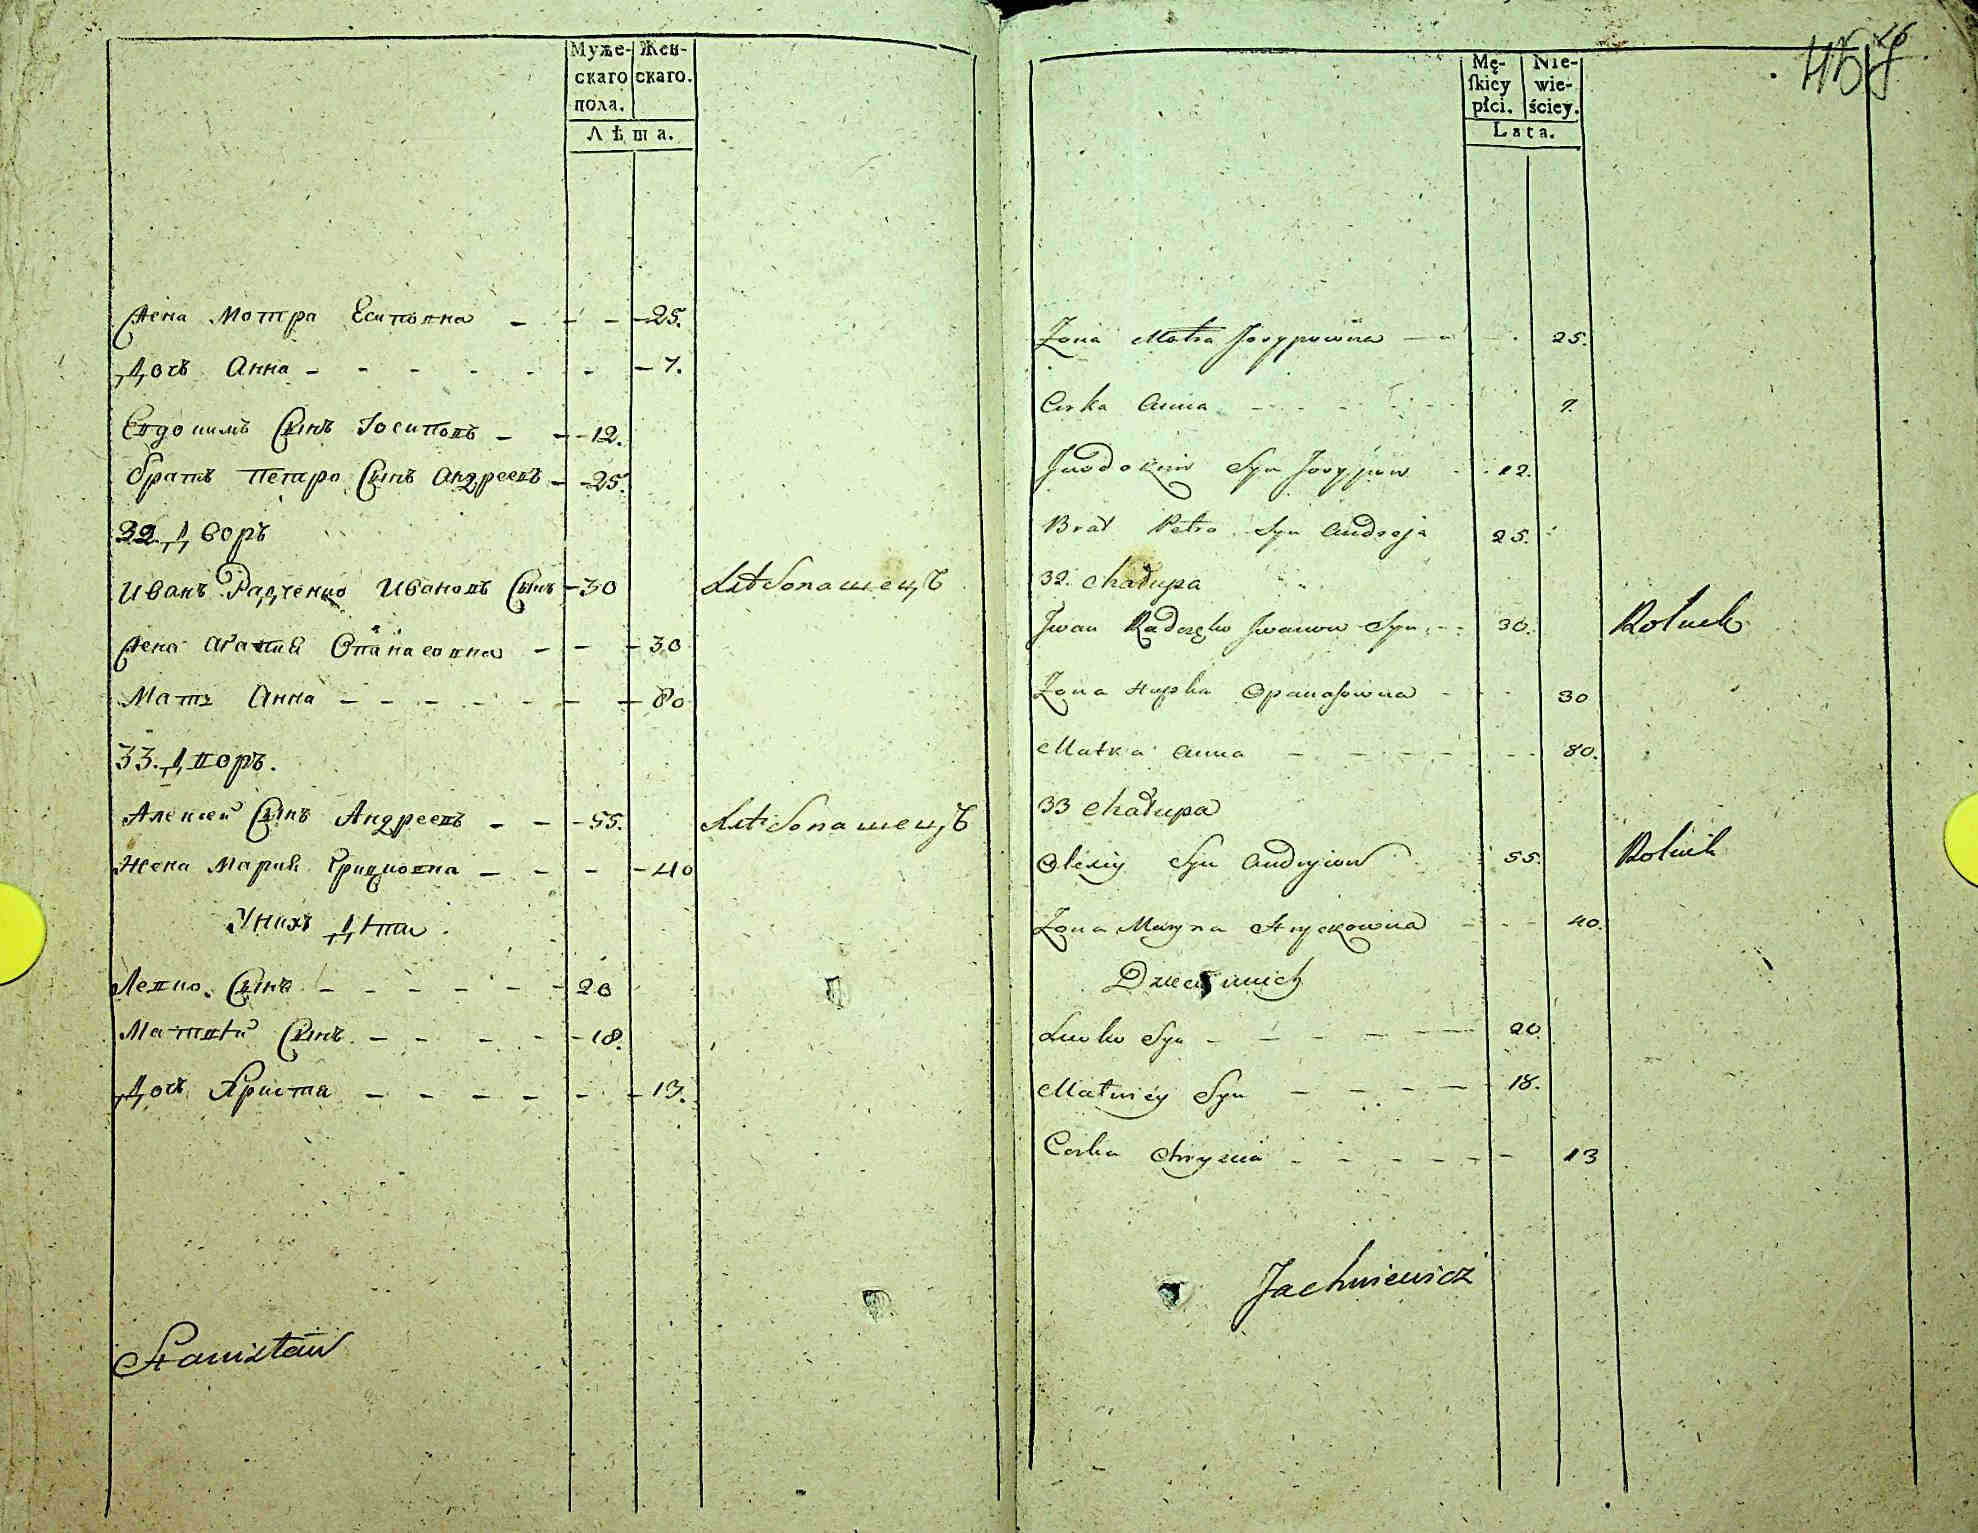 Муже-
скаго
пола.
Жен-
скаго.
Лѣта.
Жена Мотра Есиповна - - - 25.
Дочь Анна - - - - - - - 7.
Евдокимъ Сынъ Іосиповъ - - 12.
Братъ Петро Сынъ Андреевъ - 25.
32. Дворъ
Иванъ Радченко Ивановъ Сынъ - 30 Хлѣбопашецъ
Жена Агапія Опанасовна - - - 30
Мать Анна - - - - - - - 80
33. Дворъ.
Алексей Сынъ Андреевъ - - - 55. Хлѣбопашецъ
Жена Марія Грицковна - - - - 40
У нихъ Дѣти.
Левко Сынъ - - - - - - 20
Матвѣй Сынъ - - - - - 18.
Дочь Христя - - - - - - 13.
Stanisław
Mę-
ſkiey
płci.
Nie-
wie-
ściey.
Lata.
Żona Motra Josypowna - - - 25.
Corka Anna - - - - - 7.
Jwdokim Syn Josypow - - 12.
Brat Petro Syn Andreja 25.
32. Chałupa
Jwan Radczęko Jwanow Syn - - 30. Rolnik
Żona Hapka Opanasowna - - - 30
Matka Anna - - - - - - 80.
33 Chałupa
Olexiy Syn Andryiow 55. Rolnik
Żona Maryna Hryckowna - - - 40.
Dzieci u nich
Lewko Syn - - - - - 20.
Matwiey Syn - - - - 18.
Corka Chrystia - - - - - - 13
Jachniewicz